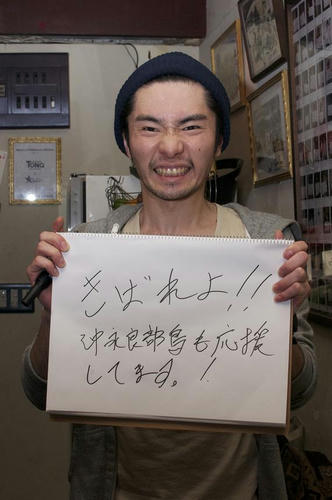 きばれよ!!
沖永良部島も応援
してます。!